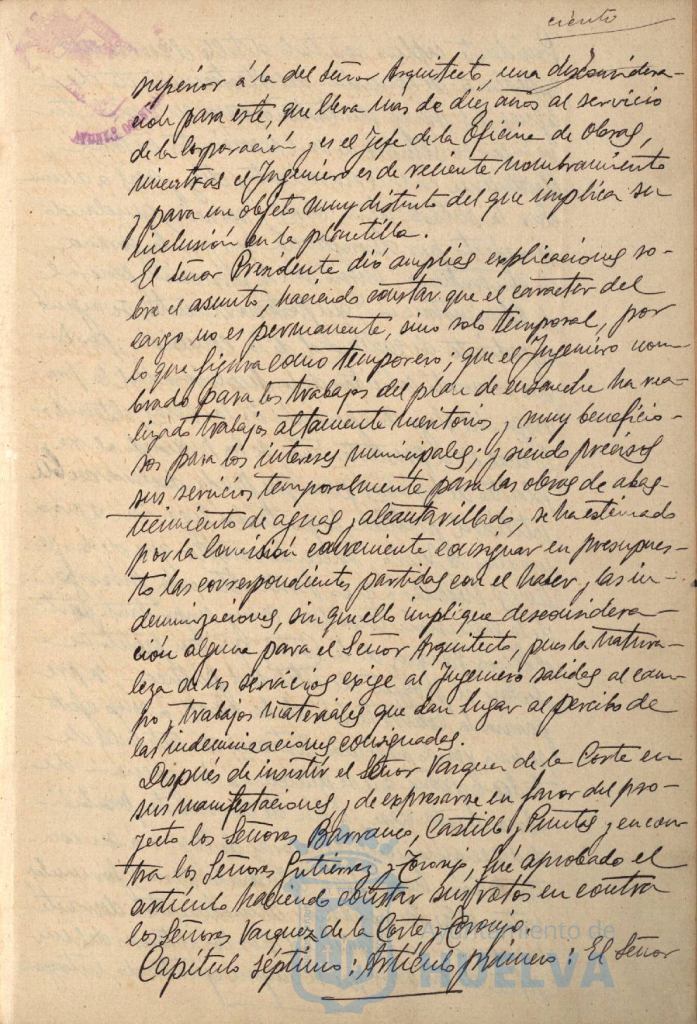 ciento
superior á la del Señor Arquitecto, una desconsidera-
ción para éste, que lleva mas de diez años al servicio
de la Corporación y es el Jefe de la Oficina de Obras,
mientras el Ingeniero es de reciente nombramiento
y para un objeto muy distinto del que implica su
inclusión en la plantilla.
El Señor Presidente dió amplias explicaciones so-
bre el asunto, haciendo constar que el caracter del
cargo no es permanente, sino solo temporal, por
lo que figura como temporero; que el Ingeniero nom-
brado para los trabajos del plan de ensanche ha rea-
lizado trabajos altamente meritorios y muy beneficio-
sos para los intereses municipales; y siendo precisos
sus servicios temporalmente para las obras de abas-
tecimiento de aguas y alcantarillado, se ha estimado
por la Comisión conveniente consignar en presupues-
to las correspondientes partidas con el haber y las in-
demnizaciones, sin que ello implique desconsidera-
ción alguna para el Señor Arquitecto, pues la natura-
leza de los servicios exige al Ingeniero salidas al cam-
po y trabajos materiales que dan lugar al percibo de
las indemnizaciones consignadas.
Después de insistir el Señor Vazquez de la Corte en
sus manifestaciones y de expresarse en favor del pro-
yecto los Señores Barranco, Castillo y Puntas y en con-
tra los Señores Gutiérrez y Toronjo, fué aprobado el
artículo haciendo constar sus votos en contra
los Señores Vazquez de la Corte y Toronjo.
Capítulo séptimo: Artículo primero: El Señor
Ayuntamiento de
HUELVA